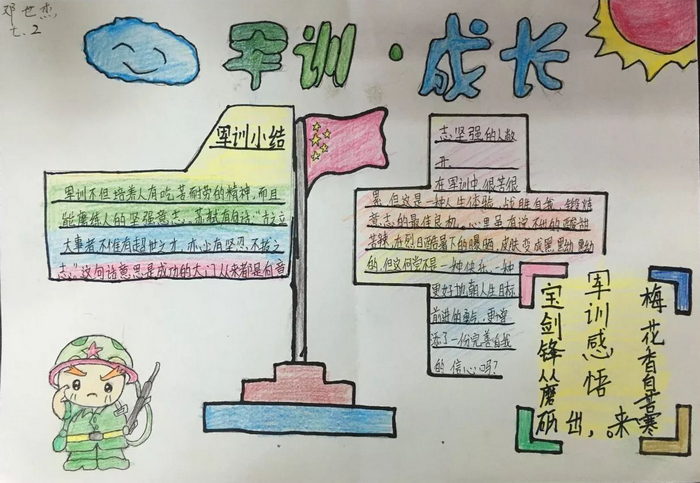 邓世杰
七.2
军训·成长
军训小结
军训不但培养人有吃苦耐劳的精神,而且
能磨练人的坚强意志。苏轼有句诗:“古之立
大事者,不惟有超世之才,亦必有坚忍不拔之
志。”这句话意思是成功的大门从来都是向意
志坚强的人敞
开。
在军训中,很苦很
累,但这是一种人生体验,战胜自我,锻炼
意志的最佳良机。心里虽有说不出的酸甜
苦辣,在烈日酷暑下的曝晒,皮肤变成黑黝黝
的,但这何尝不是一种快乐,一种
更好地朝人生目标
前进的勇气,更增
添了一份完善自我
的信心吗?
军训感悟
宝剑锋从磨砺出,
梅花香自苦寒
来。